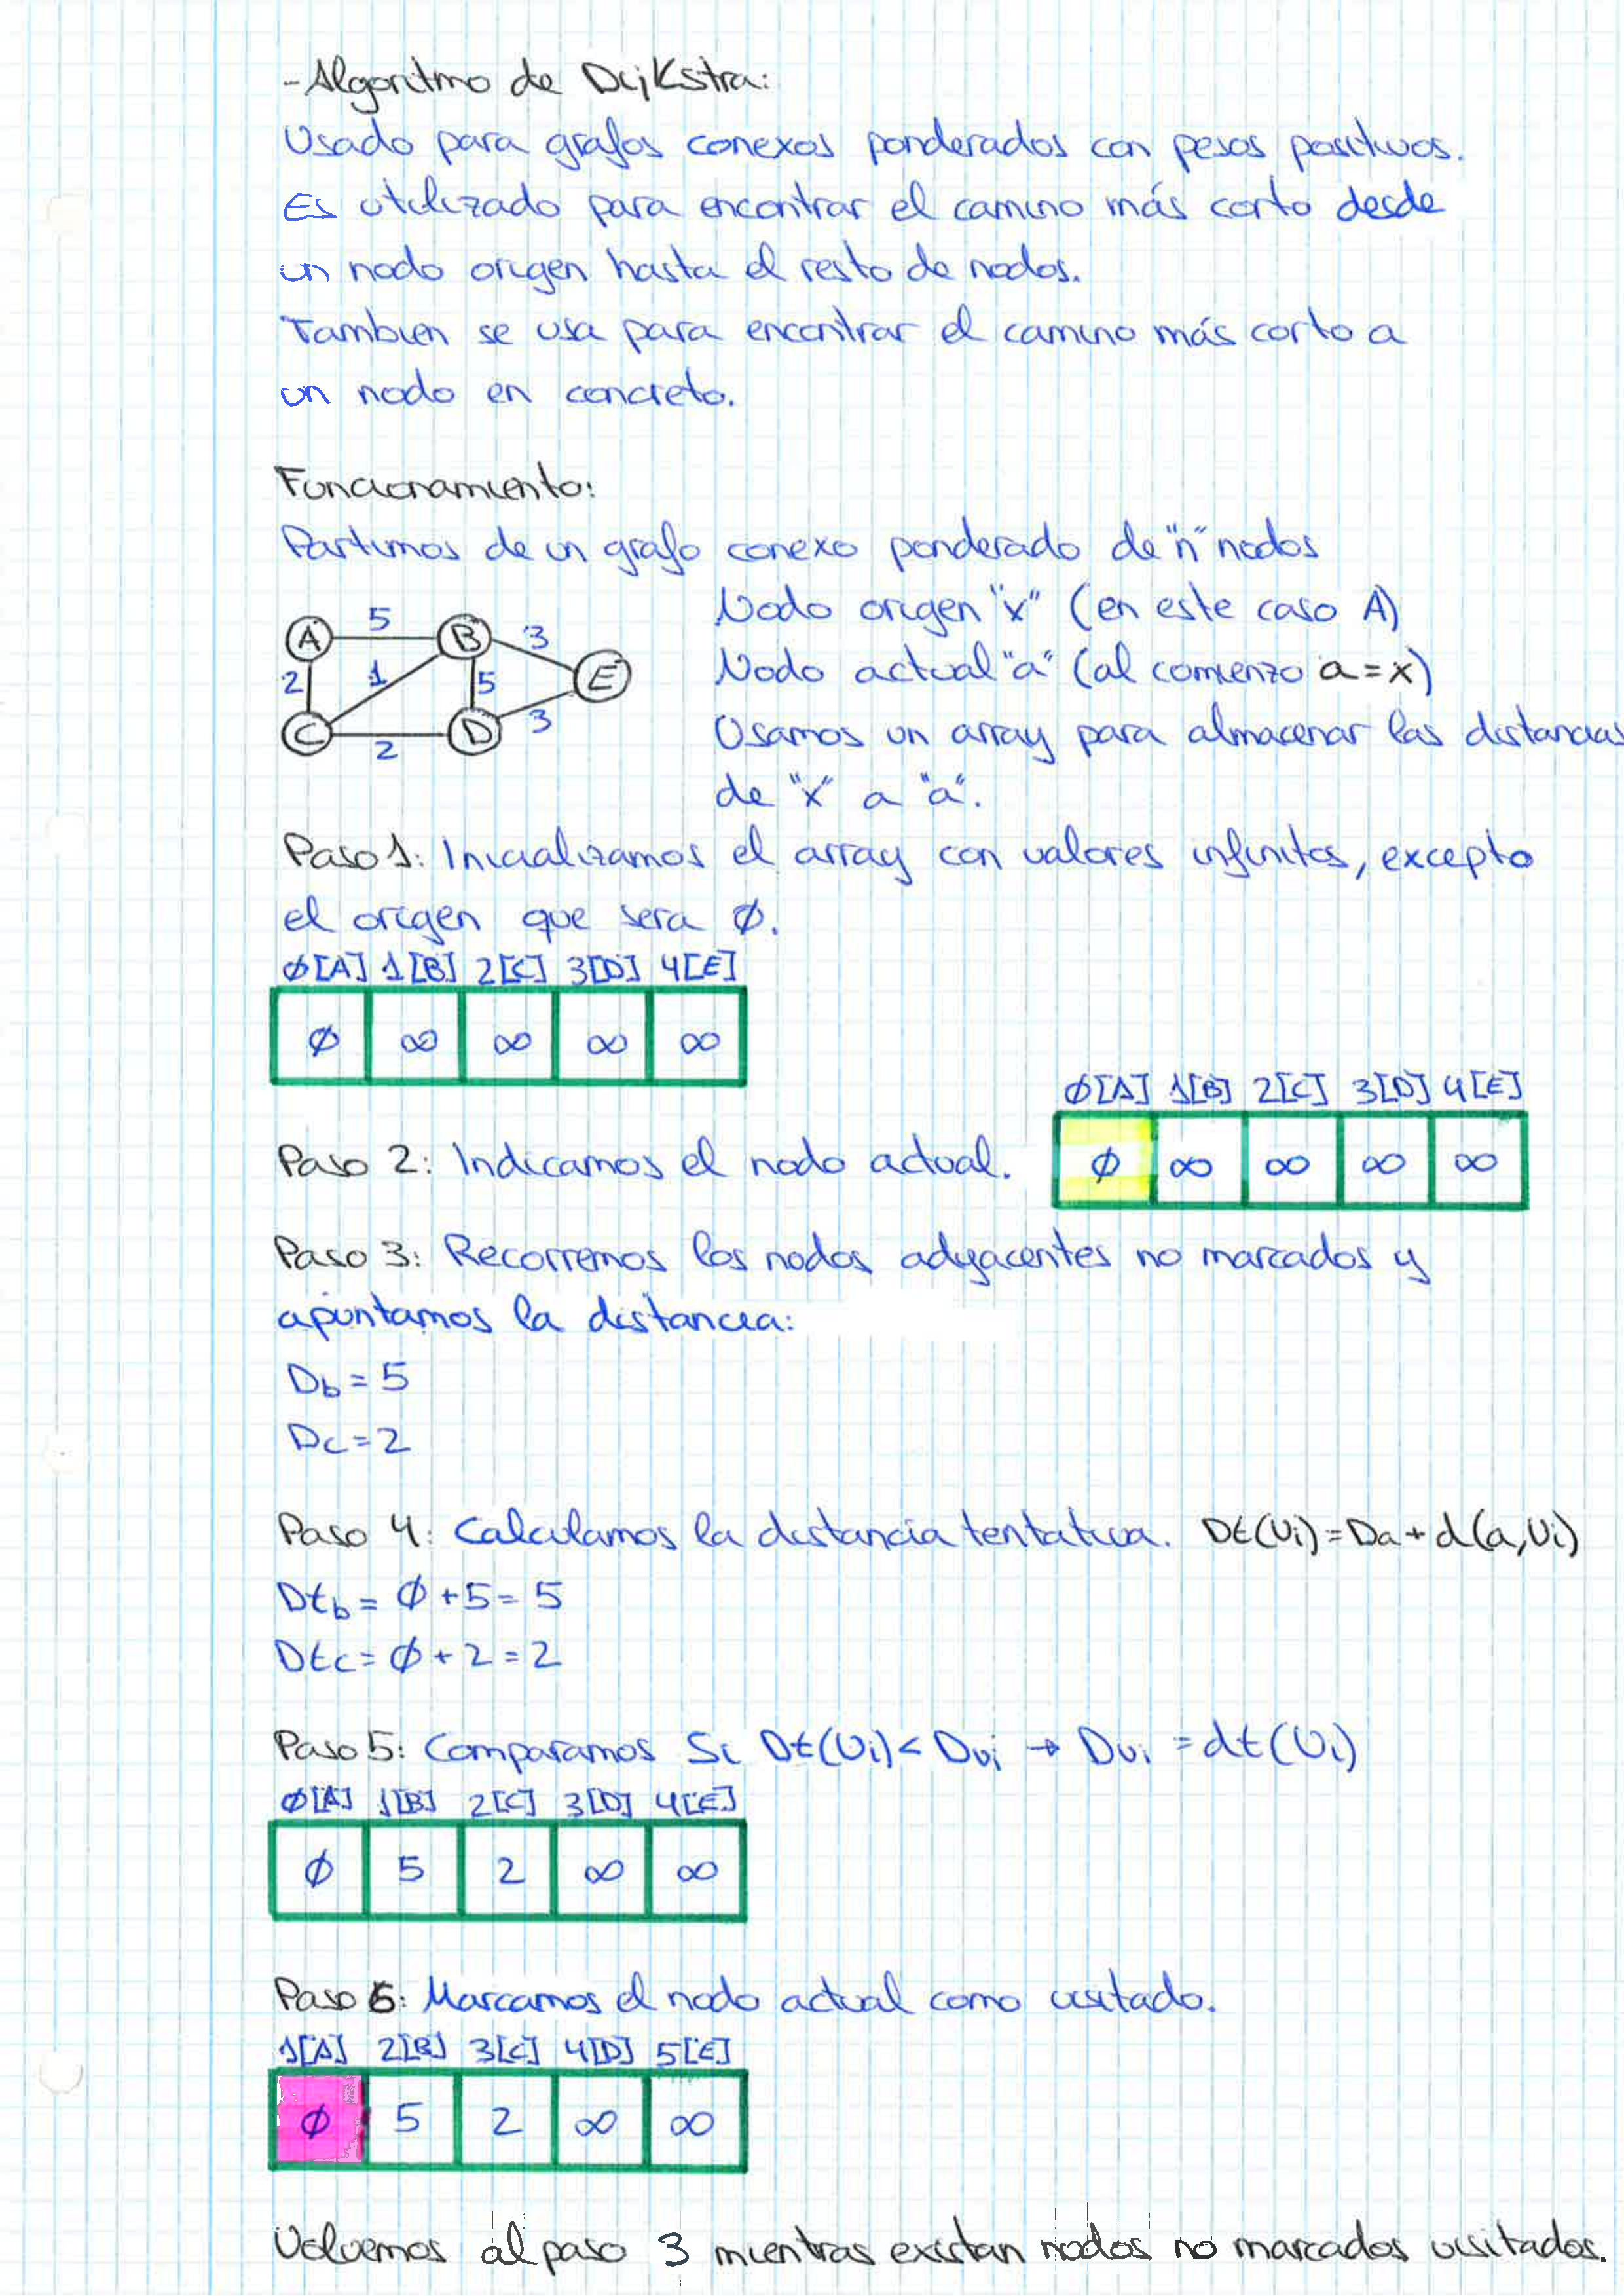 - Algoritmo de Dijkstra:
Usado para grafos conexos ponderados con pesos positivos.
Es utilizado para encontrar el camino más corto desde
un nodo origen hasta el resto de nodos.
Tambien se usa para encontrar el camino más corto a
un nodo en concreto.
Funcionamiento:
Partimos de un grafo conexo ponderado de "n" nodos
Nodo origen "x" (en este caso A)
Nodo actual "a" (al comienzo a=x)
Usamos un array para almacenar las distancias
de "x" a "a".
A 5 B 3
2 1 5 E
C 2 D 3
Paso 1: Inicializamos el array con valores infinitos, excepto
el origen que sera Ø.
Ø[A] 1[B] 2[C] 3[D] 4[E]
Ø ∞ ∞ ∞ ∞
Ø[A] 1[B] 2[C] 3[D] 4[E]
Paso 2: Indicamos el nodo actual.
Ø ∞ ∞ ∞ ∞
Paso 3: Recorremos los nodos adyacentes no marcados y
apuntamos la distancia:
Db = 5
Dc = 2
Paso 4: Calculamos la distancia tentativa. Dt(Vi) = Da + d(a,Vi)
Dtb = Ø + 5 = 5
Dtc = Ø + 2 = 2
Paso 5: Comparamos Si Dt(Vi) < Dvi → Dvi = dt(Vi)
Ø[A] 1[B] 2[C] 3[D] 4[E]
Ø 5 2 ∞ ∞
Paso 6: Marcamos el nodo actual como visitado.
1[A] 2[B] 3[C] 4[D] 5[E]
Ø 5 2 ∞ ∞
Volvemos al paso 3 mientras existan nodos no marcados visitados.